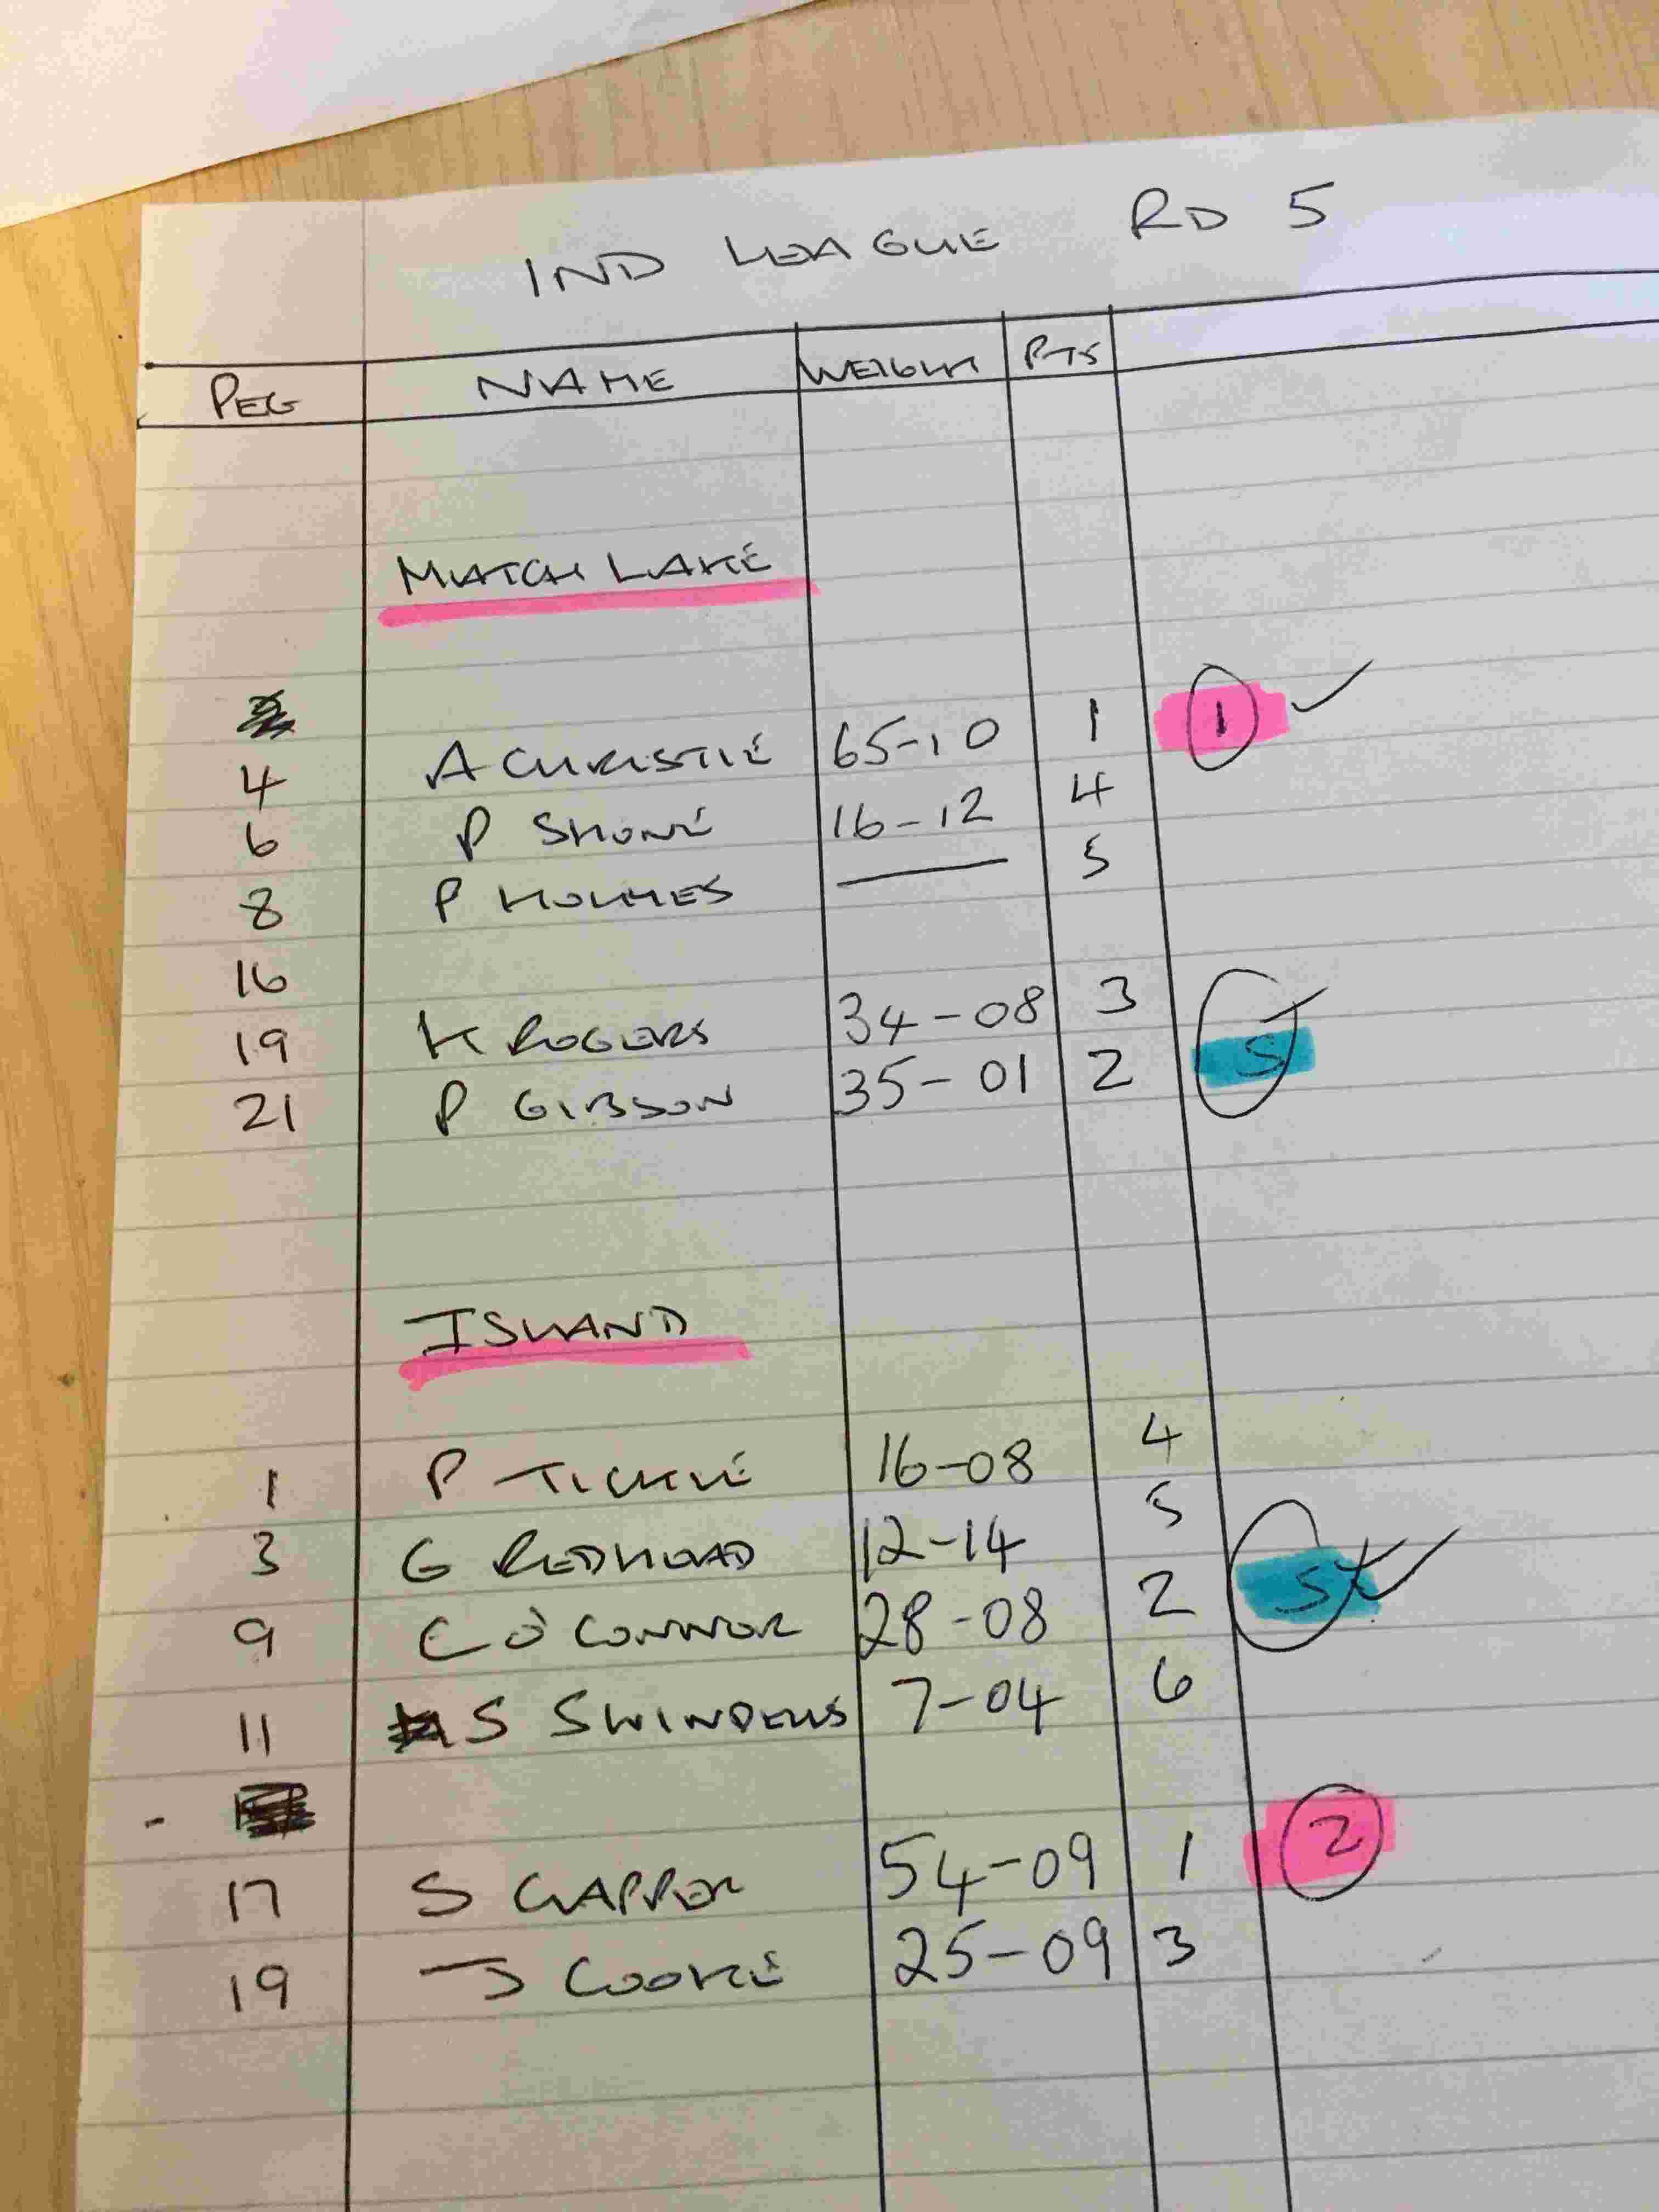 IND LEAGUE RD 5
PEG NAME WEIGHT PTS
MATCH LAKE
4 A CHRISTIE 65-10 1 1
6 P SHONE 16-12 4
8 P HOLMES — 5
16
19 K ROGERS 34-08 3
21 P GIBSON 35-01 2 S
ISLAND
1 P TICKLE 16-08 4
3 G REDHEAD 12-14 5
9 C O'CONNOR 28-08 2 S
11 S SWINDELLS 7-04 6
17 S CLAPPER 54-09 1 2
19 J COOKE 25-09 3